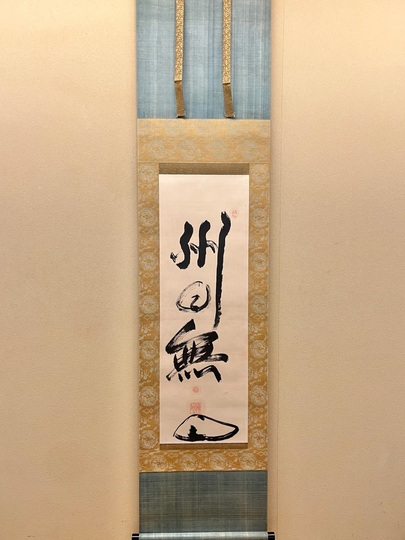 州曰無